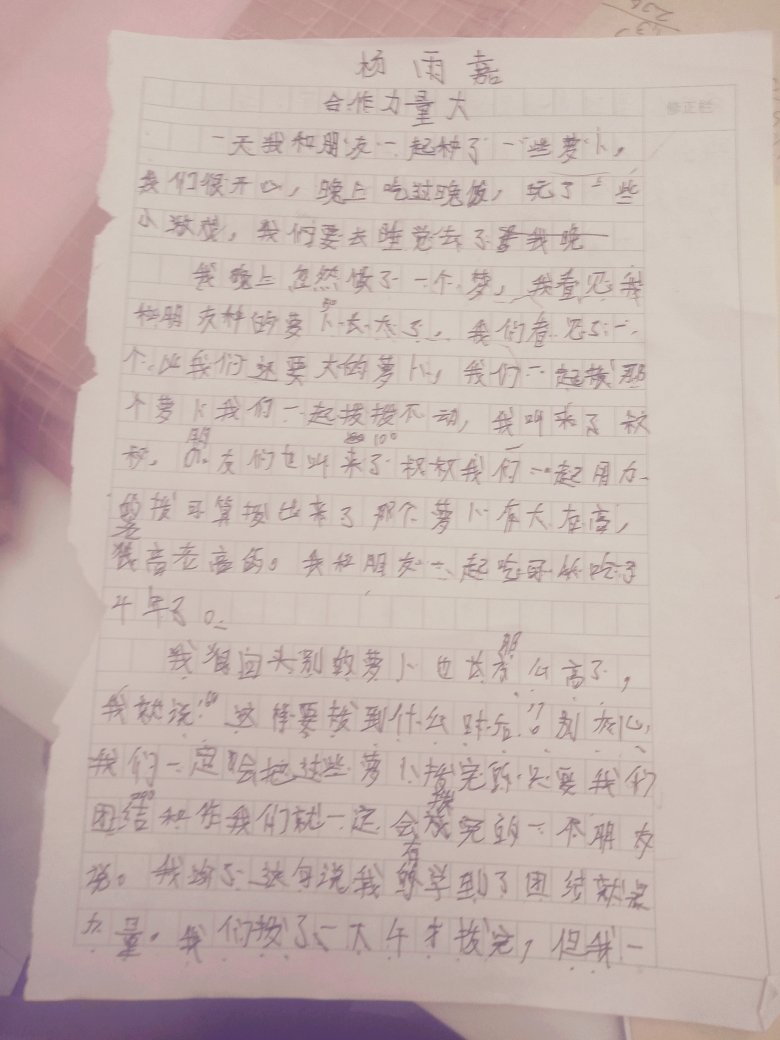 杨雨嘉
合作力量大
修正栏
一天我和朋友一起种了一些萝卜,
我们很开心,晚上吃过晚饭,玩了一些
小游戏,我们要去睡觉去了我晚
我晚上忽然做了一个梦,我看见我
50
和朋友种的萝卜长大了,我们看见了一
个比我们还要大的萝卜,我们一起拔那
个萝卜我们一起拔拔不动,我叫来了叔
朋 100
叔,友们也叫来了叔叔我们一起用力
的拔可算拔出来了那个萝卜有大在高,
很高老高的。我和朋友一起吃可以吃了
半年了。
那
我猛回头别的萝卜也长么高了,
我就说:“这样要拔到什么时后?”别灰心,
我们一定会把这些萝卜拔完的只要我们
200 拔
团结和作我们就一定会完的一个朋友
有
说。我听了这句说我学到了团结就是
力量。我们拔了一大午才拔完,但我一